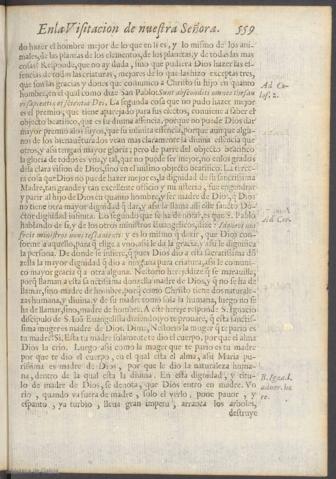 En la Visitacion de nuestra Señora. 559
do hazer el hombre mejor de lo que en si es, y lo mismo de los ani-
males, de las plantas de los elementos, de los planetas, y de todas mas
cosas? Responde, que no ay duda, sino que pudiera Dios hazer las es-
sencias de todas las criaturas, mejores de lo que las hizo exceptas tres,
que son las gracias y dones que comunico a Christo su hijo en quanto
hombre, en el qual como dize San Pablo. Sunt absconditi omnes thesau-
ri sapientiæ et scientiæ Dei. La segunda cosa que no pudo hazer mejor
Ad Co-
los. 2.
es el premio, que tiene aparejado para sus electos, conviene a saber el
objecto beatifico, que es su divina essencia, porque no puede Dios dar
mayor premio a los suyos, que su infinita essencia, porque aunque algu-
nos de los bienaventurados vean mas claramente la divina essencia que
otros, y assi tengan mayor gloria; pero de parte del objecto beatifico
la gloria de todos es una, y tal, que no puede ser mejor, no en los grados
de la clara vision de Dios, sino en el mismo objecto beatifico. La terce-
ra cosa que Dios no puede hazer mejor es, la dignidad de su sanctissima
Madre, tan grande y tan excellente officio y ministerio, fue engendrar
y parir al hijo de Dios en quanto hombre, y ser madre de Dios, q̃ Dios
no tiene otra mayor dignidad q̃ dar, y assi la llama alli este sancto Do-
ctor dignidad infinita. Lo segundo que se ha de notar, es que S. Pablo
Ad Cor.
hablando de si, y de los otros ministros Euangelicos, dize
y es lo mismo dezir, que Dios con-
forme a aquello, para q̃ elige a uno, assi le da la gracia, y assi le dignifica
la persona. De donde se infiere, q̃ pues Dios dio a esta sacratissima dõ-
zella la mayor dignidad q̃ dio a ninguna pura criatura, assi le comuni-
co mayor gracia q̃ a otra alguna. Nestorio herege dize q̃ se maravilla,
porq̃ llaman a esta sanctissima donzella madre de Dios, y q̃ no se ha de
llamar, sino madre de hombre, porq̃ como Christo tiene dos naturale-
zas humana, y divina, y de su madre tomò sola la humana, luego no se
ha de llamar, sino, madre de hombre. A este herege responde S. Ignacio
discipulo de S. Iuan Euangelista diziendo yo te provare, q̃ esta sanctis-
sima muger es madre de Dios. Dime, Nestorio la muger q̃ te pario es
tu madre? Si. Esta tu madre solamente te dio el cuerpo, por que el alma
Dios la crio. Luego assi como la muger que te pario es tu madre
por que te dio el cuerpo, en el qual esta el alma, assi Maria pu-
rissima es madre de Dios, por que le dio la naturaleza huma-
na, dentro de la qual esta la divina. En esta dignidad, y titu-
lo de madre de Dios, se denota, que Dios entro en madre. Un
B. Ignal.
adver. hæ
re.
rio, quando va fuera de madre, solo el verlo, pone pavor, y
espanto, va turbio, lleva gran impetu, arranca los arboles,
destruye